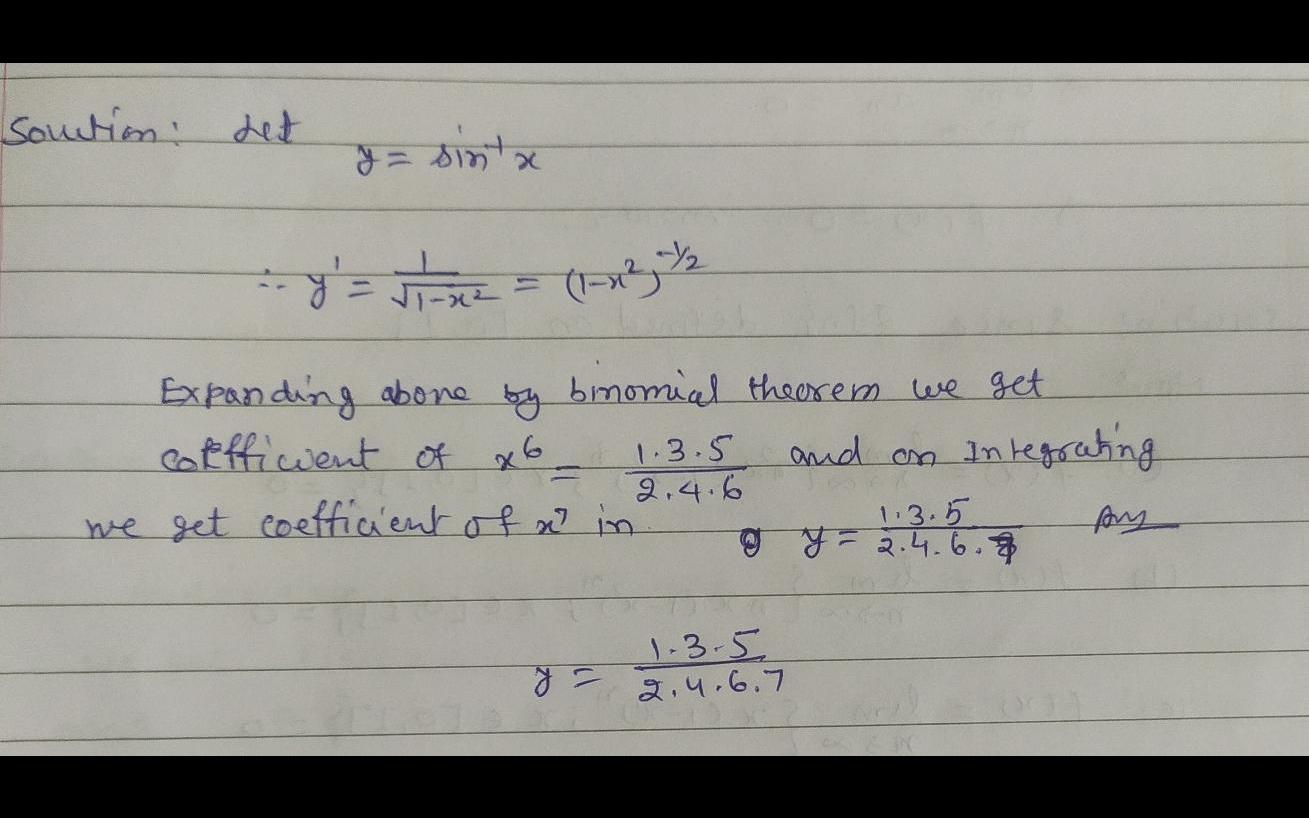 Soution: Let
y = sin⁻¹ x
∴ y' = 1/√(1-x²) = (1-x²)^-1/2
Expanding above by binomial theorem we get
coefficient of x⁶ = 1.3.5/2.4.6 and on Integrating
we get coefficient of x⁷ in y = 1.3.5/2.4.6.7 Ans
y = 1.3.5/2.4.6.7